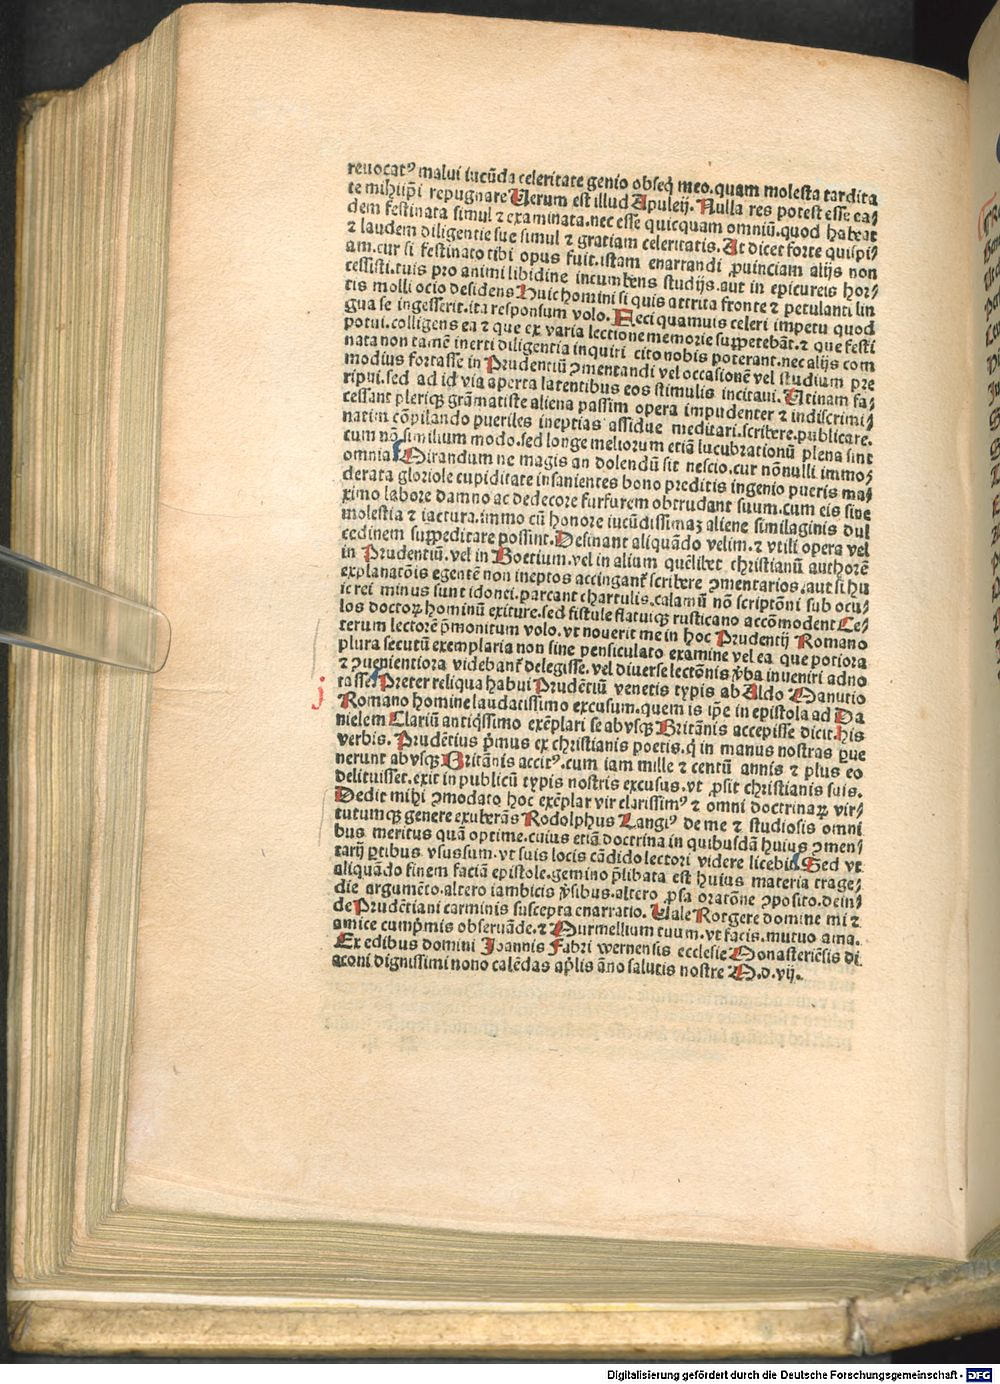 reuocatꝰ malui iucūda celeritate genio obseq̄ meo. quam molesta tardita
te mihiip̄i repugnare Uerum est illud Apuleij. Nulla res potest esse ea⸗
dem festinata simul ⁊ examinata. nec esse quicquam omniū. quod habeat
⁊ laudem diligentie sue simul ⁊ gratiam celeritatis. At dicet forte quispi⸗
am. cur si festinato tibi opus fuit. istam enarrandi ꝓuinciam alijs non
cessisti. tuis pro animi libidine incumbens studijs. aut in epicureis hor⸗
tis molli ocio desidens Huic homini si quis attrita fronte ⁊ petulanti lin
gua se ingesserit. ita responsum volo. Feci quamuis celeri impetu quod
potui. colligens ea ⁊ que ex varia lectione memorie suppetebāt. ⁊ que festi
nata non tamē inerti diligentia inquiri cito nobis poterant. nec alijs com
modius fortasse in Prudentiū ꝯmentandi vel occasionē vel studium pre
ripui. sed ad id via aperta latentibus eos stimulis incitaui. Utinam fa⸗
cessant pleriqꝫ grāmatiste aliena passim opera impudenter ⁊ indiscrimi⸗
natim cōpilando pueriles ineptias assidue meditari. scribere. publicare.
tum nō similium modo. sed longe meliorum etiā lucubrationū plena sint
omnia. Mirandum ne magis an dolendū sit nescio. cur nōnulli immo⸗
derata gloriole cupiditate insanientes bono preditis ingenio pueris ma⸗
ximo labore damno ac dedecore furfurem obtrudant suum. cum eis sine
molestia ⁊ iactura. immo cū honore iucūdissimaꝫ aliene similaginis dul
cedinem suppeditare possint. Desinant aliquādo velim. ⁊ vtili opera vel
in Prudentiū. vel in Boetium. vel in alium quēlibet christianū authorē
explanatōis egentē non ineptos accingant̄ scribere ꝯmentarios. aut si hu
ic rei minus sunt idonei. parcant chartulis. calamū nō scriptōni sub ocu⸗
los doctoꝝ hominū exiture. sed fistule flatuiqꝫ rusticano accōmodent Ce⸗
terum lectorē p̄monitum volo. vt nouerit me in hoc Prudentij Romano
plura secutū exemplaria non sine pensiculato examine vel ea que potiora
⁊ ꝯuenientiora videbant̄ delegisse. vel diuerse lectōnis v̄ba inueniri adno
tasse Preter reliqua habui Prudētiū venetis typis ab Aldo Manutio
Romano homine laudatissimo excusum. quem is ip̄e in epistola ad Da
nielem Clariū antiq̄ssimo exēplari se abvsqꝫ Britānis accepisse dicit. his
verbis. Prudētius p̄mus ex christianis poetis. q̄ in manus nostras ꝑue
nerunt abvsqꝫ Britānis accitꝰ. cum iam mille ⁊ centū annis ⁊ plus eo
delituisset. exit in publicū typis nostris excusus. vt ꝓsit christianis suis.
Dedit mihi ꝯmodato hoc exēplar vir clarissimꝰ ⁊ omni doctrinaꝝ vir⸗
tutumqꝫ genere exuberās Rodolphus Langiꝰ de me ⁊ studiosis omni
bus meritus quā optime. cuius etiā doctrina in quibusdā huius ꝯmen⸗
tarij ꝑtibus vsus sum. vt suis locis cādido lectori videre licebit. Sed vt
aliquādo finem faciā epistole. gemino p̄libata est huius materia trage⸗
die argumēto. altero iambicis v̄sibus. altero ꝓsa oratōne ꝯposito. dein⸗
de Prudētiani carminis suscepta enarratio. Uale Rotgere domine mi ⁊
amice cump̄mis obseruāde. ⁊ Murmellium tuum. vt facis. mutuo ama.
Ex edibus domini Joannis Fabri wernensis ecclesie Monasteriēsis di
aconi dignissimi nono calēdas ap̄lis āno salutis nostre M. d. vij.
j
Digitalisierung gefördert durch die Deutsche Forschungsgemeinschaft - DFG